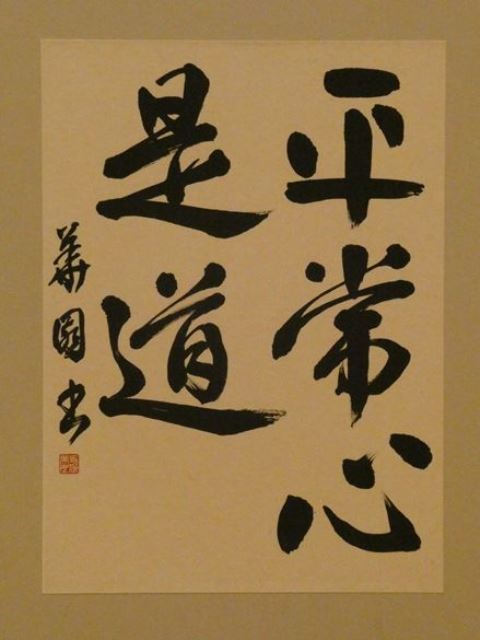 平常心
是道
華園書